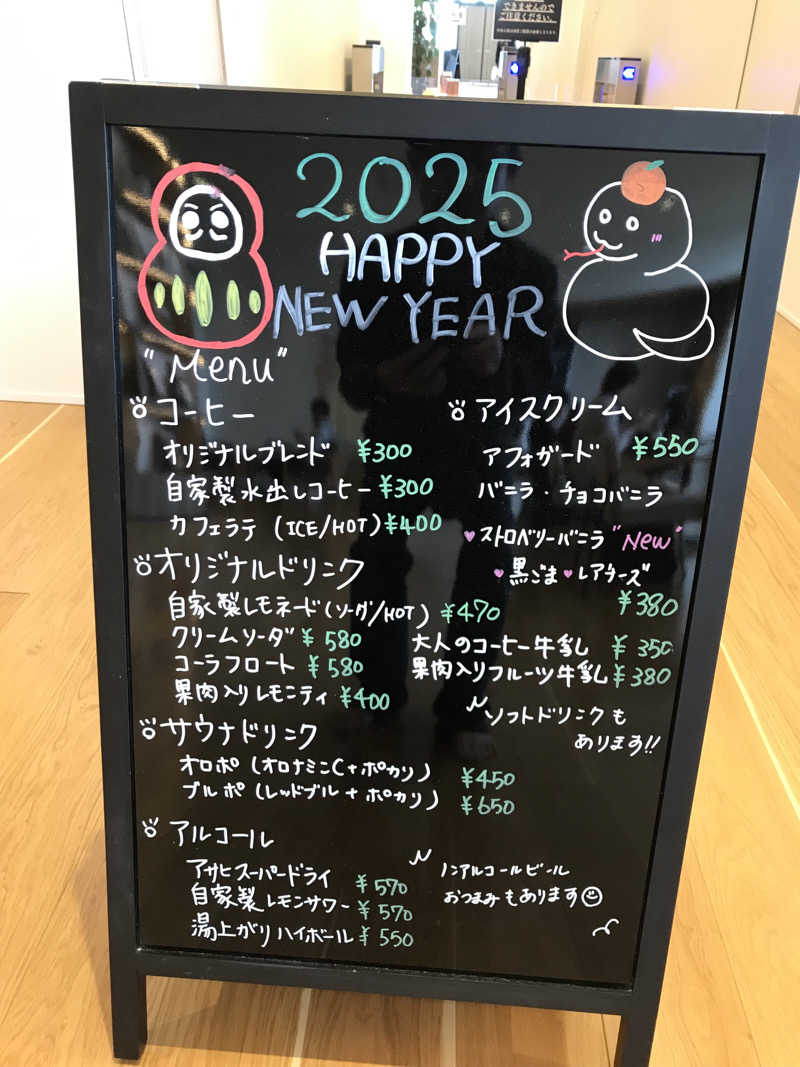 できませんので
ご注意ください。
2025
HAPPY
NEW YEAR
"Menu"
コーヒー
オリジナルブレンド ¥300
自家製水出しコーヒー ¥300
カフェラテ (ICE/HOT) ¥400
オリジナルドリンク
自家製レモネード(ソーダ/HOT) ¥470
クリームソーダ ¥580
コーラフロート ¥580
果肉入りレモンティ ¥400
サウナドリンク
オロポ (オロナミンC+ポカリ) ¥450
ブルポ (レッドブル+ポカリ) ¥650
アルコール
アサヒスーパードライ ¥570
自家製レモンサワー ¥570
湯上がりハイボール ¥550
アイスクリーム
アフォガード ¥550
バニラ・チョコバニラ
♥ストロベリーバニラ "New"
♥黒ごま♥レアチーズ
¥380
大人のコーヒー牛乳 ¥350
果肉入りフルーツ牛乳 ¥380
ソフトドリンクも
あります!!
ノンアルコールビール
おつまみもあります☺